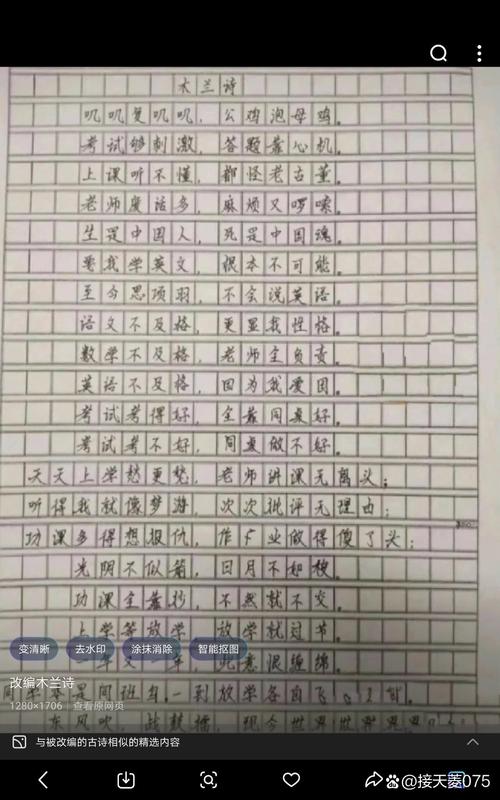 木兰诗
叽叽复叽叽，公鸡泡母鸡。
考试够刺激，答题靠心机。
上课听不懂，都怪老古董。
老师废话多，麻烦又啰嗦。
生是中国人，死是中国魂。
要我学英文，根本不可能。
至今思项羽，不会说英语。
语文不及格，更显我性格。
数学不及格，老师全负责。
英语不及格，因为我爱国。
考试考得好，全靠同桌好。
考试考不好，同桌做不好。
天天上学愁更愁，老师讲课无离头；
听得我就像梦游，次次批评无理由；
功课多得想报仇，作业做得傻了头；
光阴不似箭，日月不如梭。
功课全靠抄，不然就不交。
上学等放学，放学就过节。
年又年，此意很缠绵。
同学本是同班鸟，一到放学各自飞
东风吹，战鼓擂，现今世界
变清晰 去水印 涂抹消除 智能抠图
改编木兰诗
1280×1706 查看原网页
与被改编的古诗相似的精选内容
@接天菱075